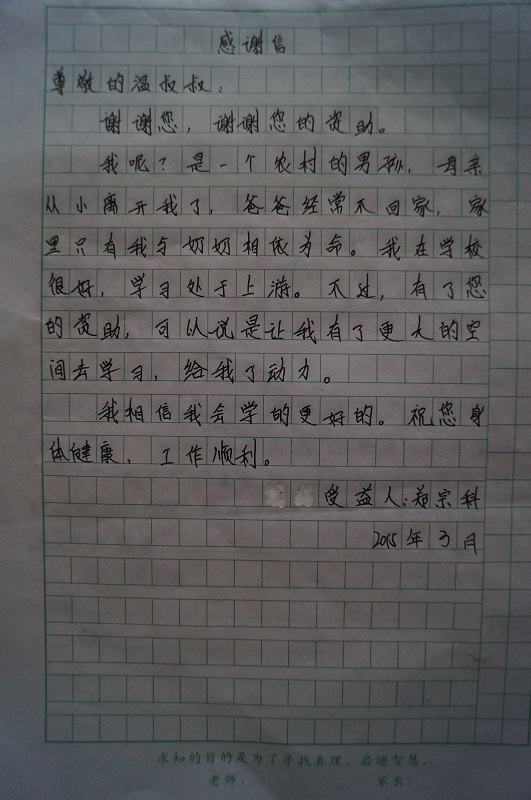 感谢信
尊敬的温叔叔：
谢谢您，谢谢您的资助。
我呢？是一个农村的男孩，母亲
从小离开我了，爸爸经常不回家，家
里只有我与奶奶相依为命。我在学校
很好，学习处于上游。不过，有了您
的资助，可以说是让我有了更大的空
间去学习，给我了动力。
我相信我会学的更好的。祝您身
体健康，工作顺利。
受益人：郑宗科
2015年3月
求知的目的是为了寻找真理，启迪智慧。
老师： 家长：